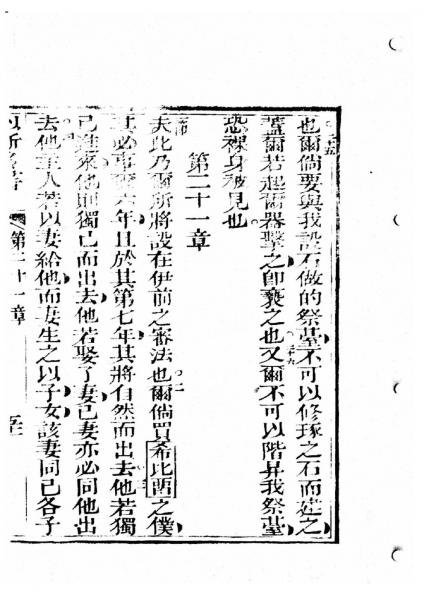 也爾倘要與我設石做的祭臺不可以修琢之石而建之
蓋爾若起爾器擊之即褻之也又爾不可以階昇我祭臺
恐裸身被見也
第二十一章
夫此乃爾所將設在伊前之審法也爾倘買希比畱之僕
其必事爾六年且於其第七年其將自然而出去他若獨
己進來他則獨己而出去他若娶了妻己妻亦必同他出
去他主人若以妻給他而妻生之以子女該妻同己各子
第二十一章